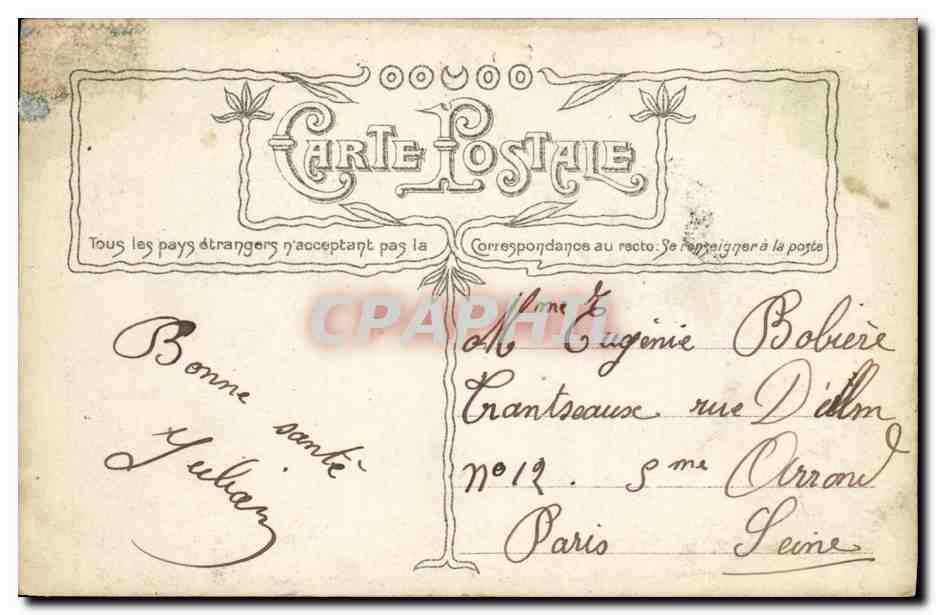 CARTE POSTALE
Tous les pays étrangers n'acceptant pas la Correspondance au recto: Se renseigner à la poste
CPAPHIL
Bonne santé
Julian
Mme Eugénie Bobière
rue D'ulm
No 12. 5me Arrond
Paris Seine